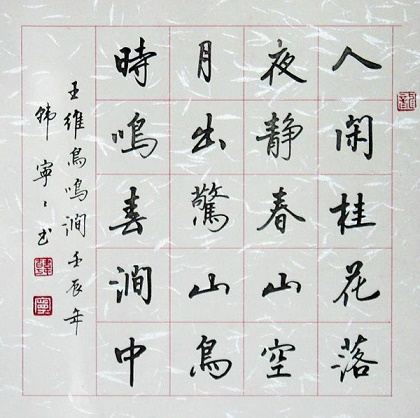 人闲桂花落
夜静春山空
月出驚山鳥
時鳴春澗中
王維鳥鳴澗壬辰年
韩寧〻书